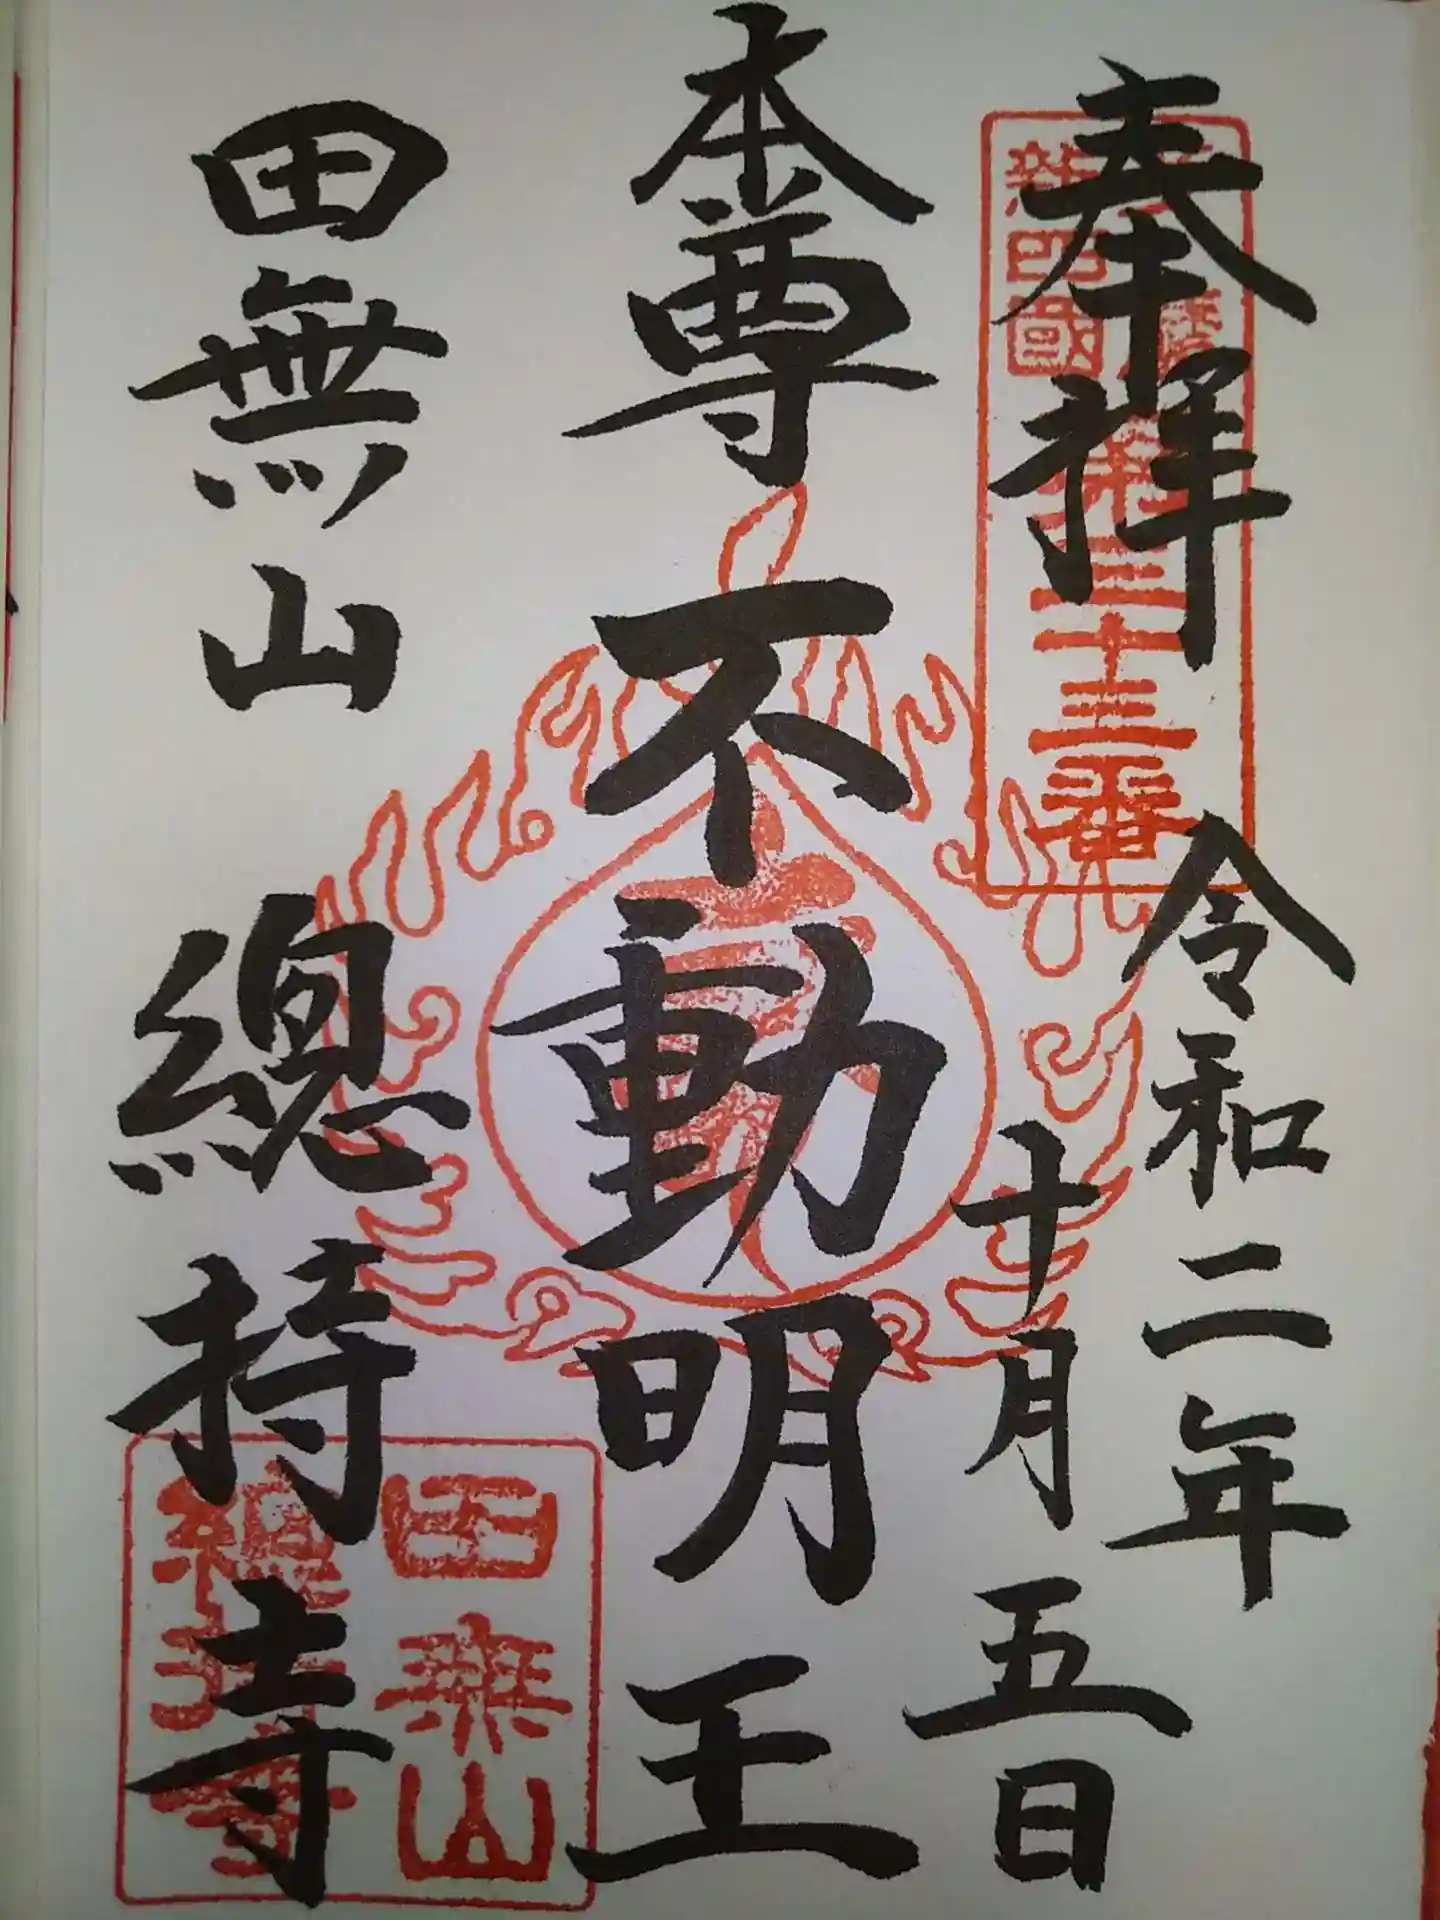 奉拝
令和二年
十月五日
本尊不動明王
田無山 總持寺
第三十三番
田無山
總持寺